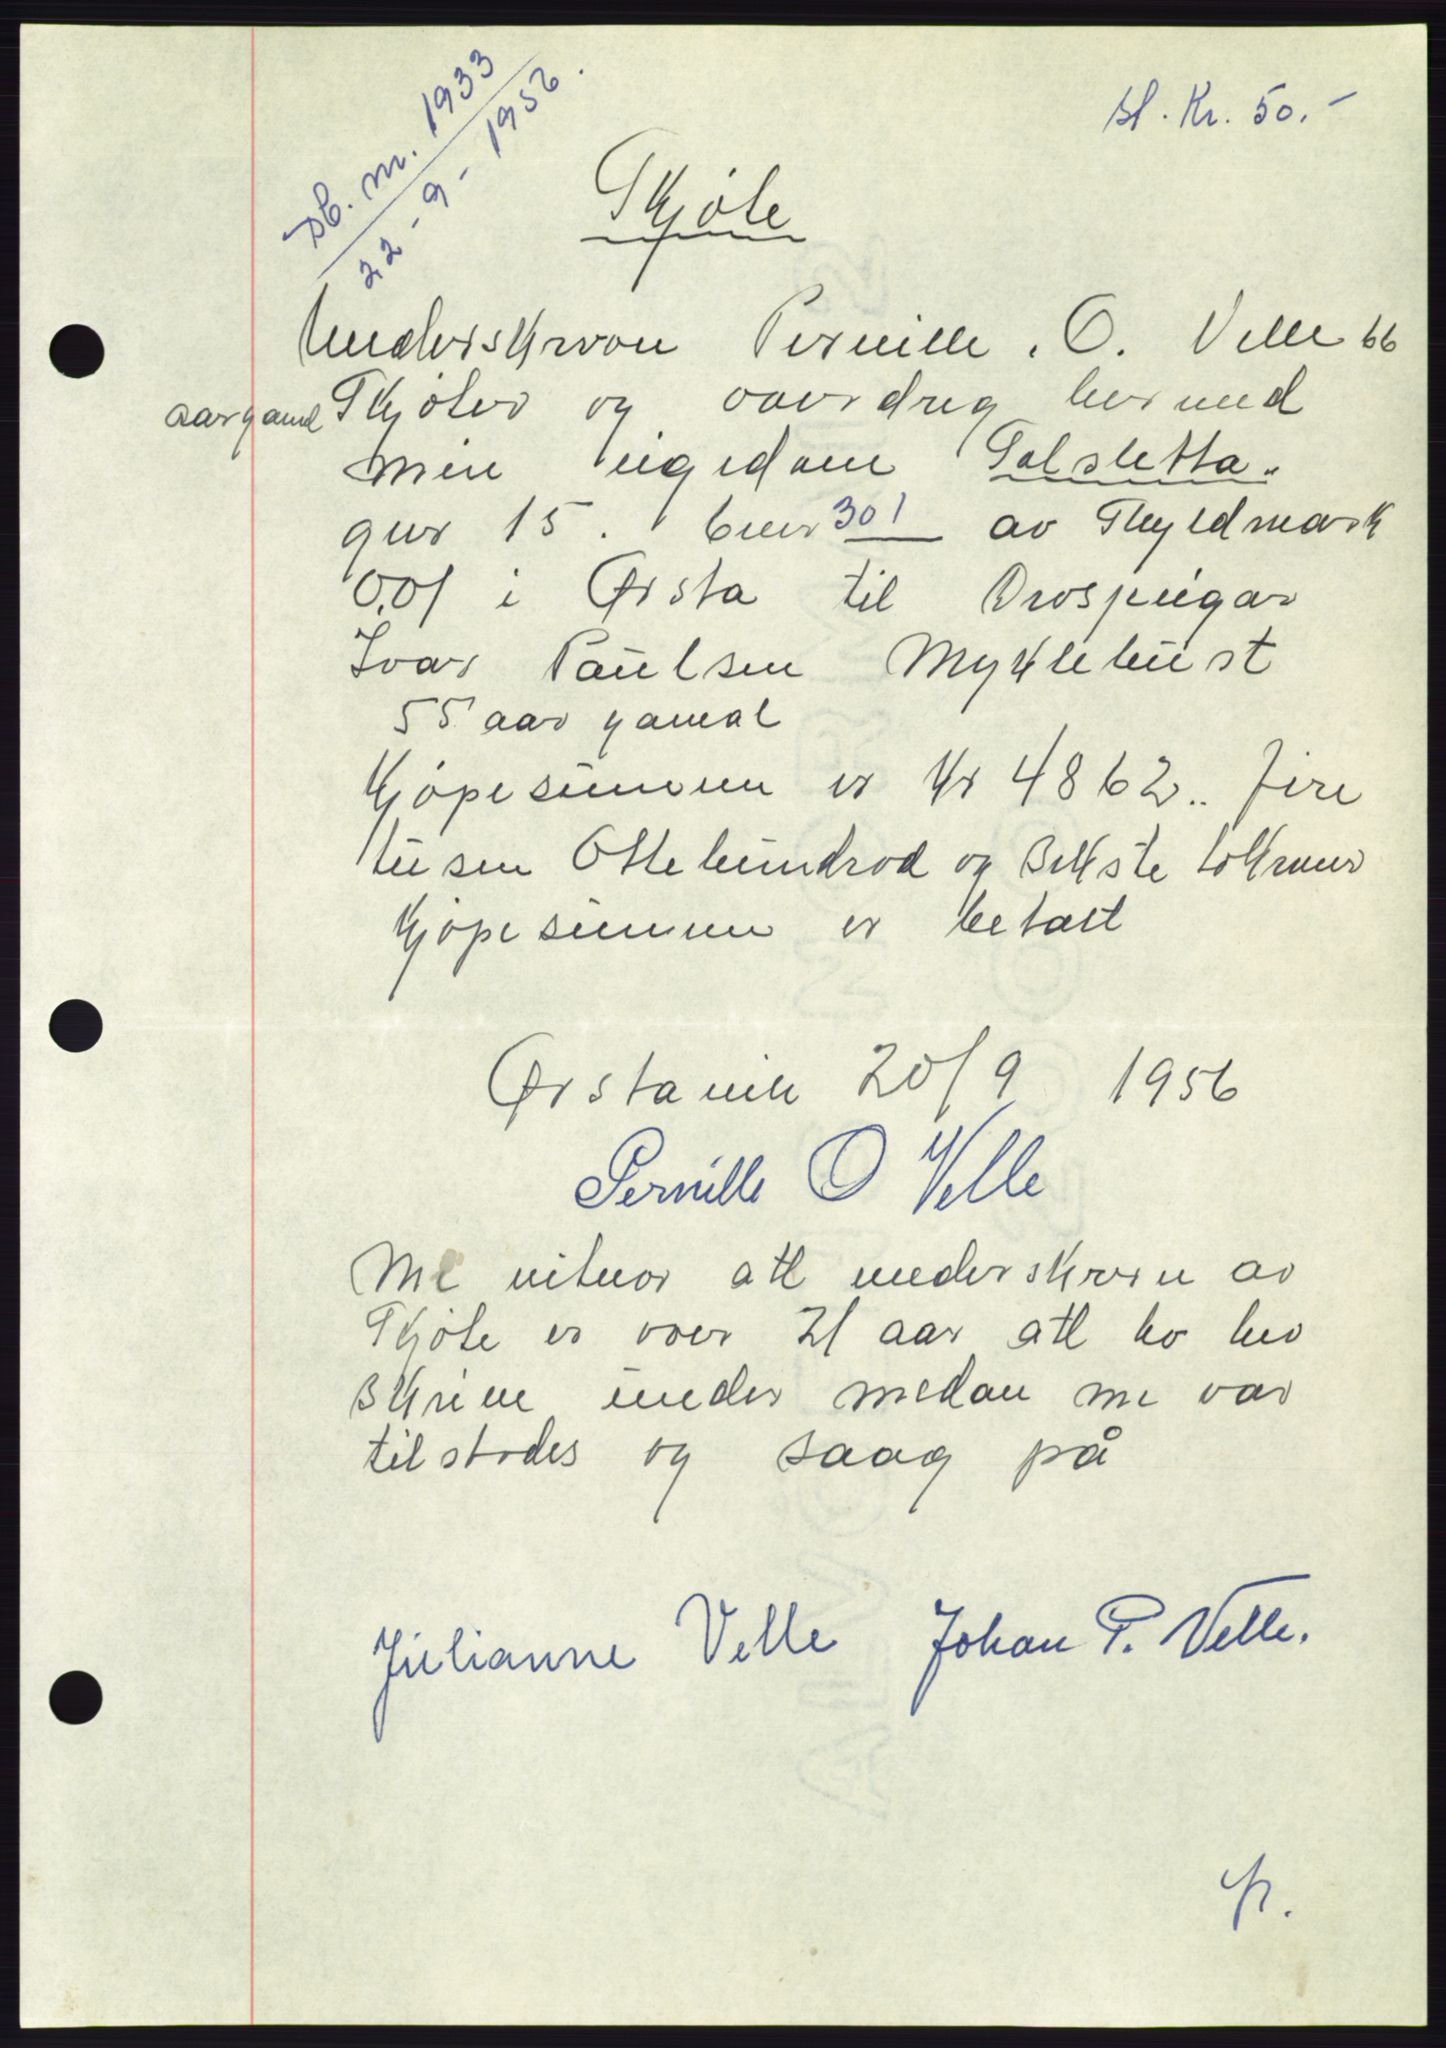 Db. nr. 1933
22-9-1956.
st. Kr. 50.-
Skjöte
Underskreven Pernille. O. Velle 66
aar gamal Skjöter og overdreg hermed
min eigedom Solsletta.
gnr 15. bnr 301 av Skyldmark
0,01 i Ørsta til Drospeigar
Ivar Paulsen Myklebust
55 aar gamal
Kjöpesummen er Kr 4862.. Fire
tusen Ottehundrad og Sekste to Kroner
Kjöpesummen er betalt
Ørstavik 20/9 1956
Pernille O Velle
Me vitner att underskreven av
Skjöte er over 21 aar att ho hev
Skrive under medan me var
tilstades og saag på
Julianne Velle Johan P. Velle.